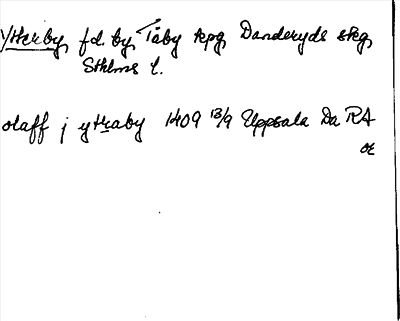 Ytterby, f.d. by, Täby kpg, Danderyds skg,
Sthlms l.
olaff j ytraby 1409 13/9 Uppsala Da RA
or